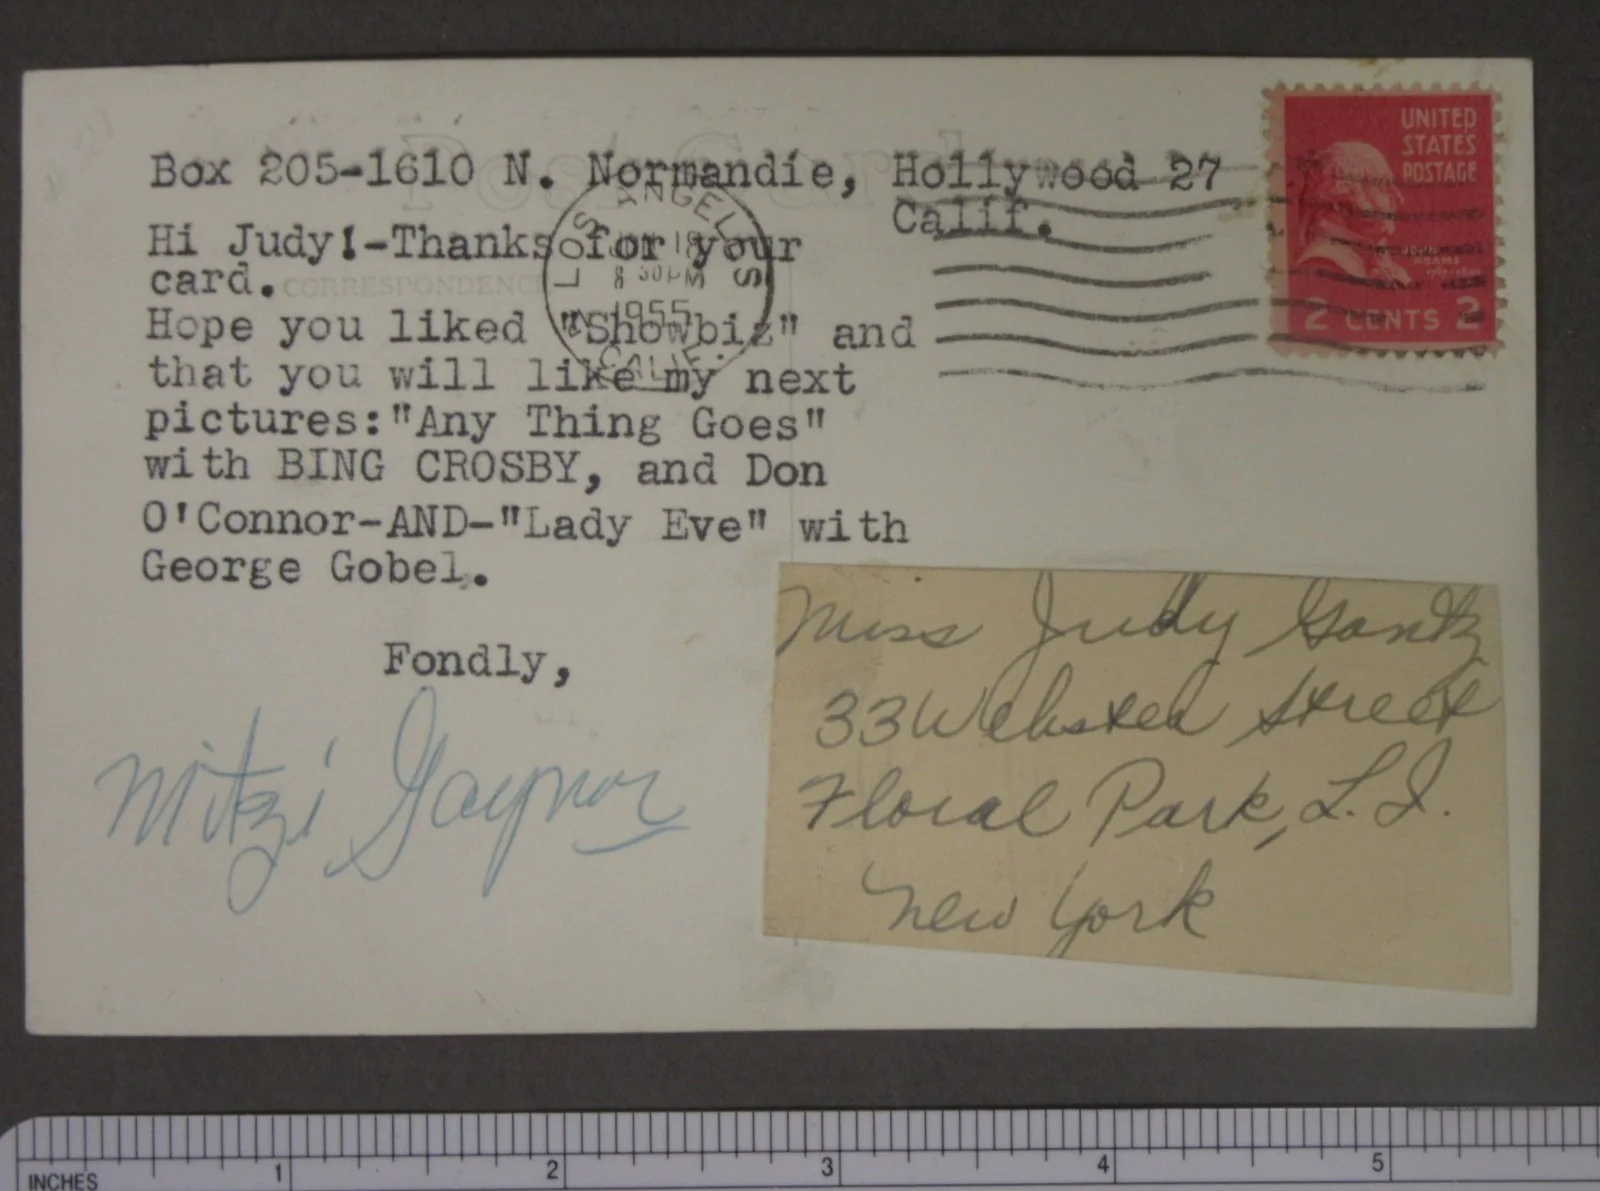 Post Card
Box 205-1610 N. Normandie, Hollywood 27
Calif.
Hi Judy!-Thanks for your
card.
CORRESPONDENCE
Hope you liked "Showbiz" and
that you will like my next
pictures:"Any Thing Goes"
with BING CROSBY, and Don
O'Connor-AND-"Lady Eve" with
George Gobel.
Fondly,
Mitzi Gaynor
LOS ANGELES
18
8 30 PM
1955
CALIF.
UNITED
STATES
POSTAGE
JOHN
ADAMS
2 CENTS 2
Miss Judy Gantz
33 Webster Street
Floral Park, L. I.
New York
INCHES 1 2 3 4 5